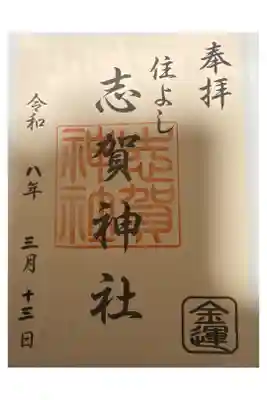 奉拝
住よし
志賀神社
志賀
神社
令和 八年 三月 十三日
金運